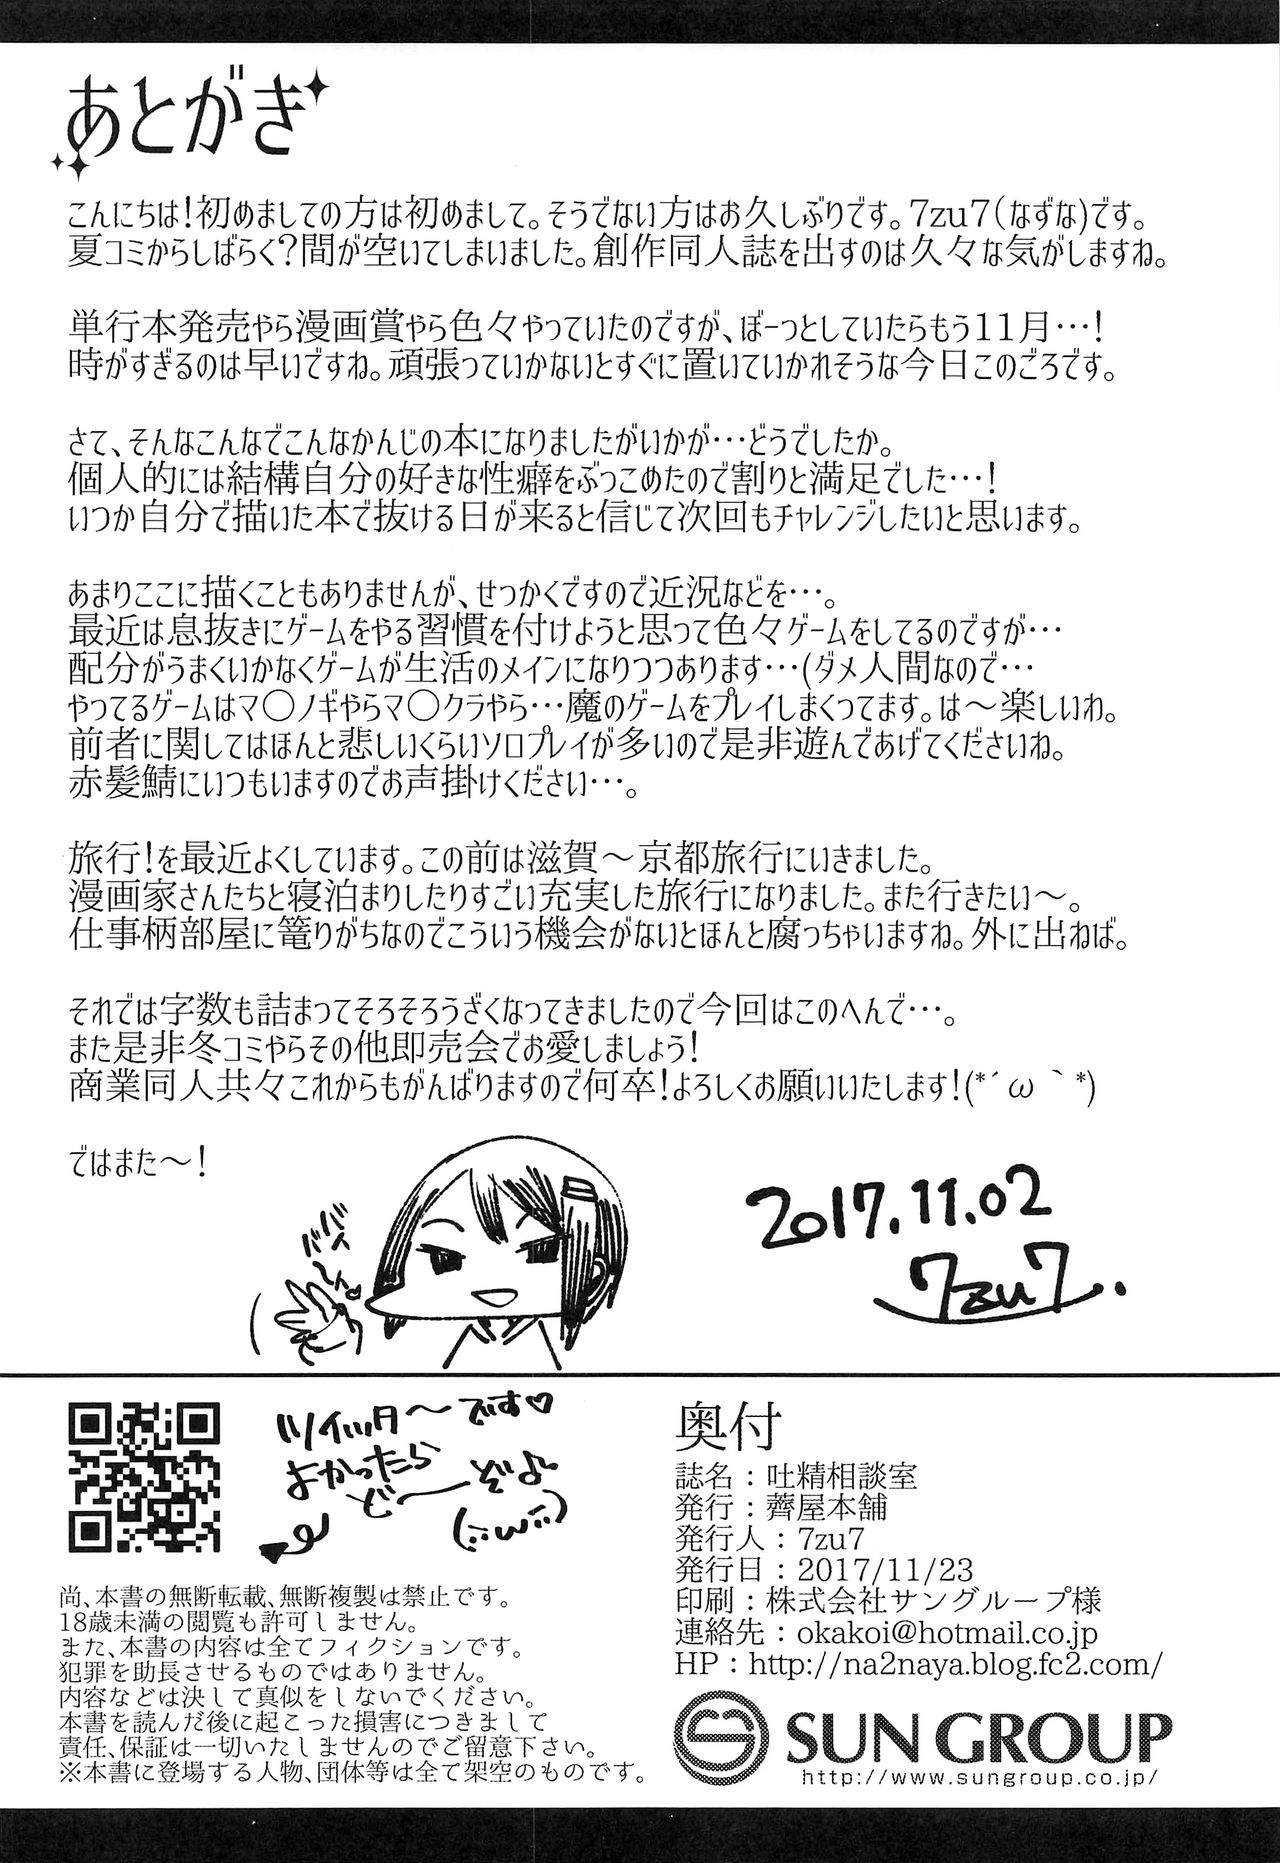 あとがき
こんにちは！初めましての方は初めまして。そうでない方はお久しぶりです。7zu7（なずな）です。
夏コミからしばらく？間が空いてしまいました。創作同人誌を出すのは久々な気がしますね。
単行本発売やら漫画賞やら色々やっていたのですが、ぼーっとしていたらもう11月…！
時がすぎるのは早いですね。頑張っていかないとすぐに置いていかれそうな今日このごろです。
さて、そんなこんなでこんなかんじの本になりましたがいかが…どうでしたか。
個人的には結構自分の好きな性癖をぶっこめたので割りと満足でした…！
いつか自分で描いた本で抜ける日が来ると信じて次回もチャレンジしたいと思います。
あまりここに描くこともありませんが、せっかくですので近況などを…。
最近は息抜きにゲームをやる習慣を付けようと思って色々ゲームをしてるのですが…
配分がうまくいかなくゲームが生活のメインになりつつあります…（ダメ人間なので…
やってるゲームはマ○ノギやらマ○クラやら…魔のゲームをプレイしまくってます。は～楽しいわ。
前者に関してはほんと悲しいくらいソロプレイが多いので是非遊んであげてくださいね。
赤髪鯖にいつもいますのでお声掛けください…。
旅行！を最近よくしています。この前は滋賀～京都旅行にいきました。
漫画家さんたちと寝泊まりしたりすごい充実した旅行になりました。また行きたい～。
仕事柄部屋に篭りがちなのでこういう機会がないとほんと腐っちゃいますね。外に出ねば。
それでは字数も詰まってそろそろうざくなってきましたので今回はこのへんで…。
また是非冬コミやらその他即売会でお愛しましょう！
商業同人共々これからもがんばりますので何卒！よろしくお願いいたします！(*´ω｀*)
ではまた～！
バイバ～イ
2017.11.02
7zu7.
ツイッタ～です♡
よかったら
ど～ぞよ
(;;ω;;)
奥付
誌名：吐精相談室
発行：薺屋本舗
発行人：7zu7
発行日：2017/11/23
印刷：株式会社サングループ様
連絡先：okakoi@hotmail.co.jp
HP：http://na2naya.blog.fc2.com/
SUN GROUP
http://www.sungroup.co.jp/
尚、本書の無断転載、無断複製は禁止です。
18歳未満の閲覧も許可しません。
また、本書の内容は全てフィクションです。
犯罪を助長させるものではありません。
内容などは決して真似をしないでください。
本書を読んだ後に起こった損害につきまして
責任、保証は一切いたしませんのでご留意下さい。
※本書に登場する人物、団体等は全て架空のものです。